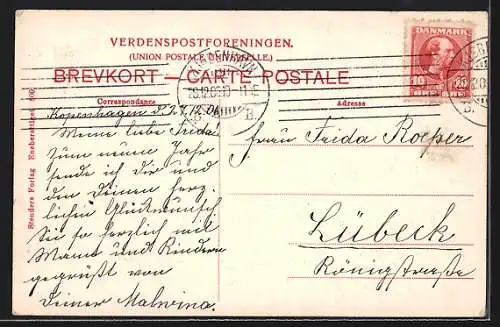 VERDENSPOSTFORENINGEN.
(UNION POSTALE UNIVERSELLE.)
BREVKORT — CARTE POSTALE
Correspondance
Adresse
DANMARK
10 10
KJØBENHAVN
B.
Stenders Forlag Eneberettiget
Kopenhagen d.
Meine liebe Frida
zum neuen Jahr
sende ich dir und
den Deinen herz
lichen Glückwunsch
Sei so herzlich mit
Mann und Kindern
gegrüßt von
deiner Malwina.
Frau Frida Roeper
Lübeck
Königstraße